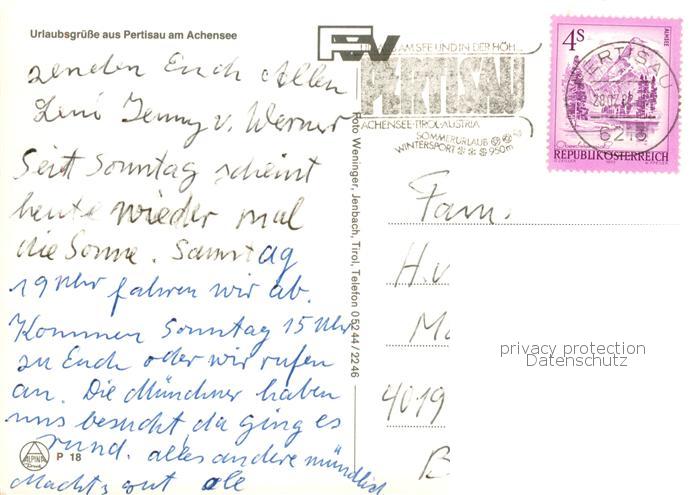 Urlaubsgrüße aus Pertisau am Achensee
senden Euch Allen
Leni Jenny u. Werner
Seit Sonntag scheint
heute wieder mal
die Sonne. Samstag
19 Uhr fahren wir ab.
Kommen Sonntag 15 Uhr
zu Euch oder wir rufen
an. Die Münchner haben
uns besucht, da ging es
rund. alles andere mündlich
Machts gut
P 18
ALPINA
Foto Weninger, Jenbach, Tirol, Telefon 05244/2246
AM SEE UND IN DER HÖH
PERTISAU
ACHENSEE-TIROL-AUSTRIA
SOMMERURLAUB
WINTERSPORT 950m
4S
ALMSEE
PERTISAU
6213
REPUBLIK ÖSTERREICH
Fam.
H.v
4019
B
privacy protection
Datenschutz